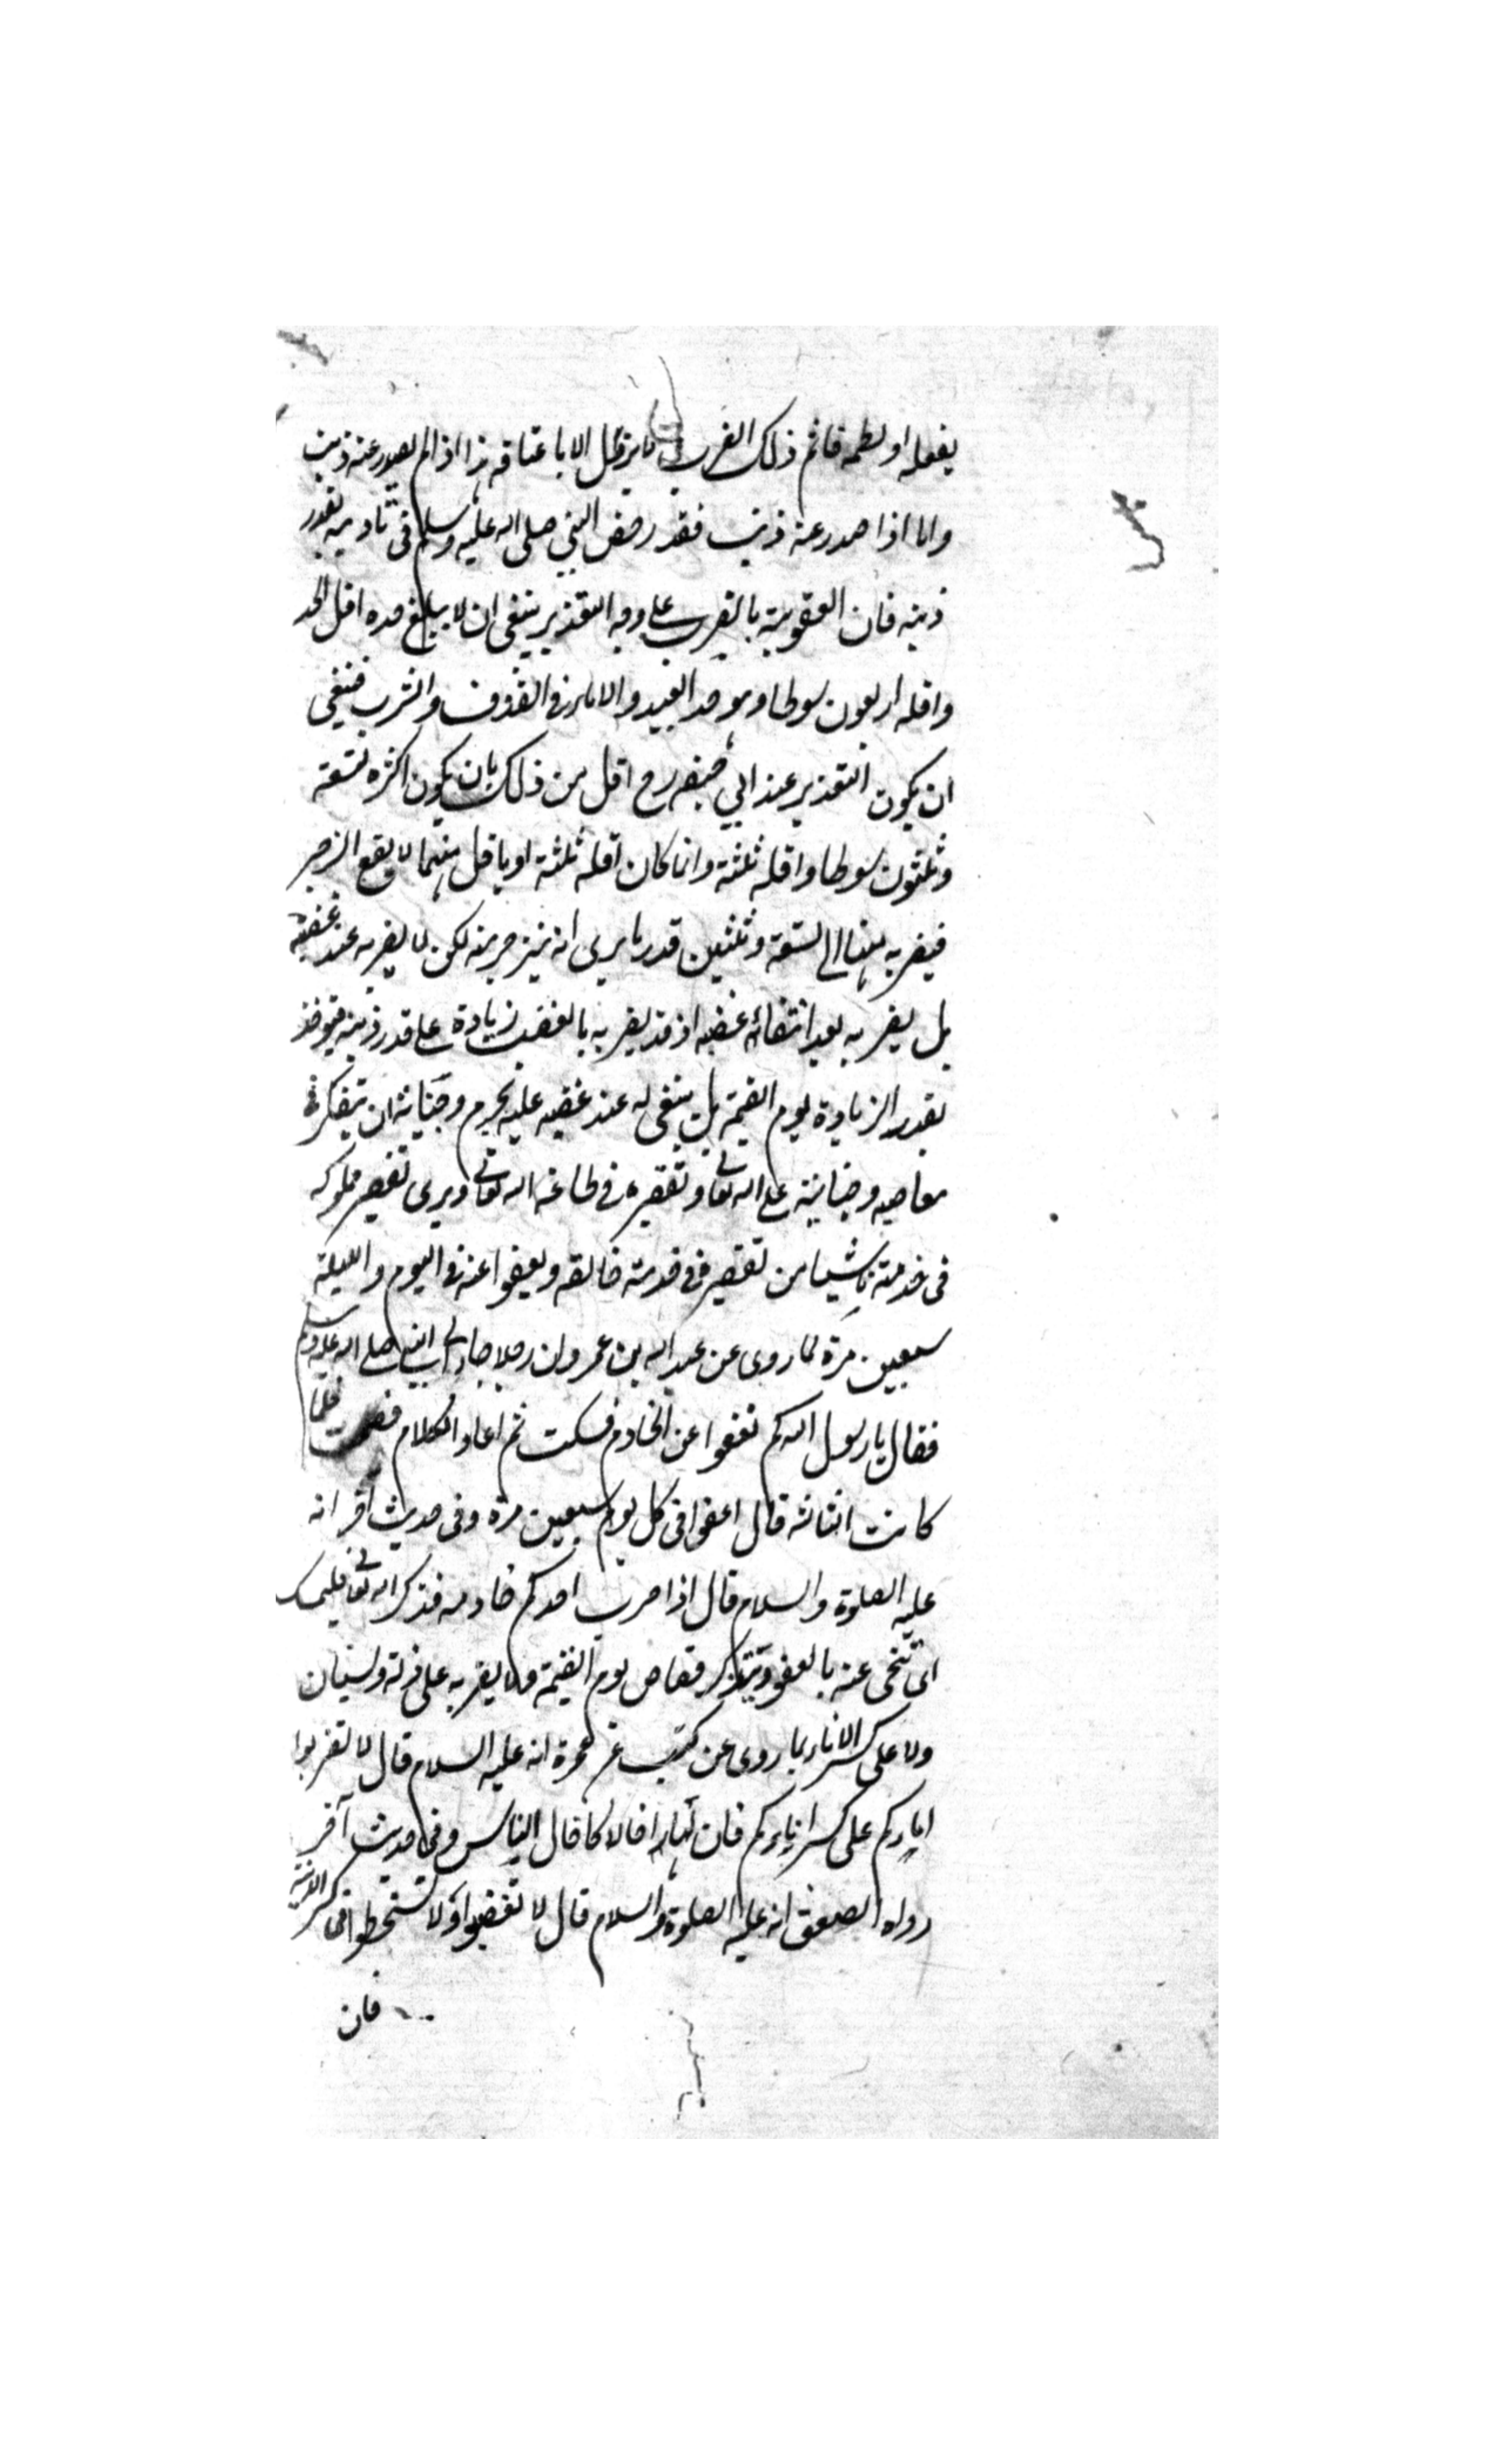 يفعله او لطمه فاثم ذلك الضرب لا يزول الا باعتاقه هذا اذا لم يصدر عنه ذنب
واما اذا صدر عنه ذنب فقد رخص النبي صلى الله عليه وسلم في تاديبه بقدر
ذنبه فان العقوبة بالضرب على وجه التعزير ينبغي ان لا يبلغ حده اقل الحد
واقله اربعون سوطا وهو حد العبيد والاماء في القذف والشرب فينبغي
ان يكون التعزير عند ابي حنيفه رح اقل من ذلك بان يكون اكثره تسعة
وثلثون سوطا واقله ثلثة وانما كان اقله ثلثة او باقل منها لا يقع الزجر
فيضربه منها الى تسعة وثلثين قدر ما يرى انه ينزجر به لكن لا يضربه عند غضبه
بل يضربه بعد انتفائه غضبه اذ قد يضربه بالغضب زيادة على قدر ذنبه فيؤخذ
بقدر الزيادة يوم القيمة بل ينبغي له عند غضبه عليه بجرم وجناية ان يتفكر في
معاصيه وجنايته على الله تعالى وتقصيره في طاعة الله تعالى ويرى تقصير مملوكه
في خدمته ناشيا من تقصيره في خدمة خالقه ويعفوا عنه في اليوم والليلة
سبعين مرة لما روى عن عبد الله بن عمر وان رجلا جاء الى النبي صلى الله عليه وسلم
فقال يا رسول الله كم نعفوا عن الخادم فسكت ثم اعاد الكلام فصمت فلما
كانت الثالثة قال اعفوا في كل يوم سبعين مرة وفي حديث اخر انه
عليه الصلوة والسلام قال اذا ضرب احدكم خادمه فذكر الله تعالى فليمسك
اى يتنحى عنه بالعفو ويتذكر قصاص يوم القيمة ولا يضربه على زلة ونسيان
ولا على كسر الاناء لما روى عن كعب عن عجرة انه عليه السلام قال لا تضربوا
اماءكم على كسر اناءكم فان لها اجالا كاجال الناس وفي حديث آخر
رواه انه عليه الصلوة والسلام قال لا تغضبوا ولا تسخطوا في كسر الانية
فان